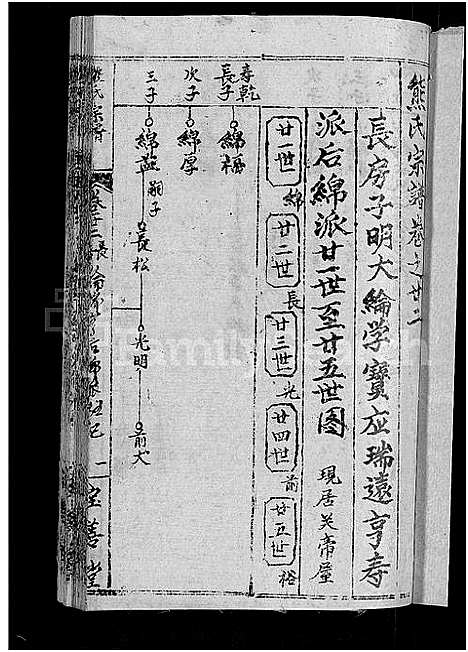 熊氏宗譜卷之廿二
長房子明大綸学寶应瑞遠亨寿
派后綿派廿一世至廿五世图 現居关帝屋
廿一世 綿 廿二世 長 廿三世 光 廿四世 前 廿五世 裕
寿乾
長子 綿福
次子 綿厚
三子 綿益 嗣子 長松 光明 前大
熊氏宗譜
二 宝善堂
FamilySearch